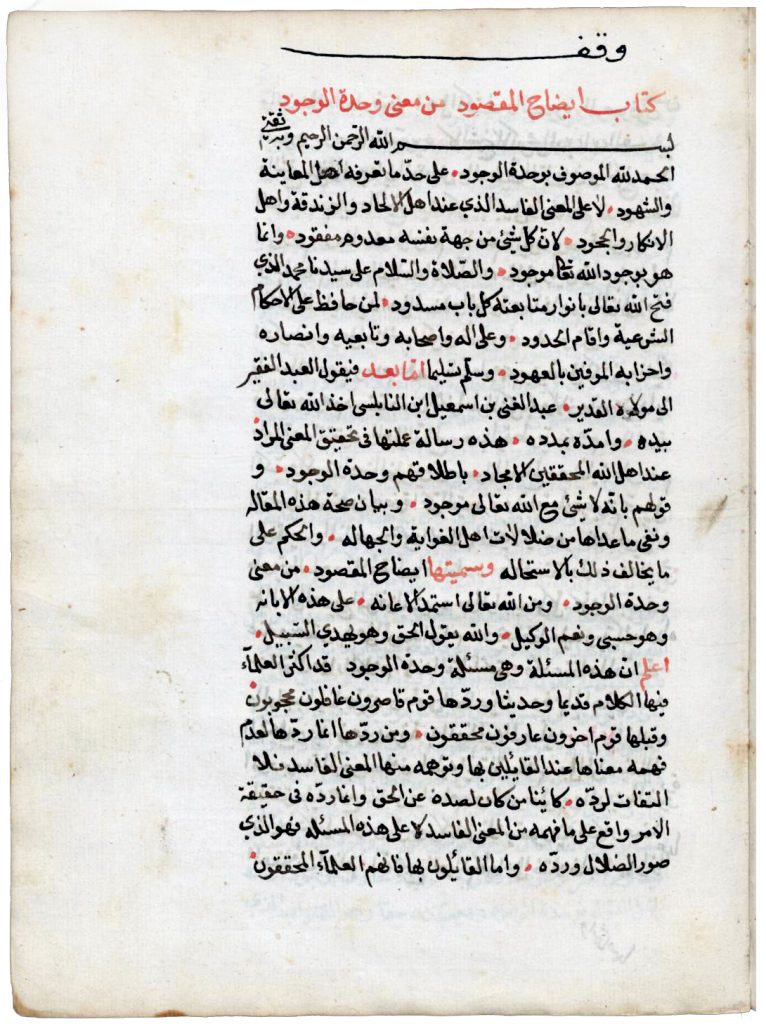 وقف
كتاب ايضاح المقصود من معنى وحدة الوجود
بسم الله الرحمن الرحيم وبه ثقتي
الحمد لله الموصوف بوحدة الوجود • على حدّ ما تعرفه اهل المعاينة
والشهود • لا على المعنى الفاسد الذي عند اهل الالحاد والزندقة واهل
الانكار والجحود • لانّ كل شيئ من جهة نفسه معدوم مفقود • وانما
هو بوجود الله تعالى موجود • والصّلاة والسّلام على سيدنا محمد الذي
فتح الله تعالى بانوار متابعته كل باب مسدود • لمن حافظ على الاحكام
الشرعية واقام الحدود • وعلى اله واصحابه وتابعيه وانصاره
واحزابه الموفين بالعهود • وسلّم تسليما امّا بعد فيقول العبد الفقير
الى مولاه القدير • عبد الغنى بن اسمعيل ابن النابلسى اخذ الله تعالى
بيده • وامدّه بمدده • هذه رسالة عملتها فى تحقيق المعنى المراد
عند اهل الله المحققين الامجاد • باطلاقهم وحدة الوجود • و
قولهم بانّه لا شيئ مع الله تعالى موجود • وبيان صحة هذه المقاله
ونفى ما عداها من ضلالات اهل الغواية والجهاله • والحكم على
ما يخالف ذلك بالاستحاله وسميتها ايضاح المقصود • من معنى
وحدة الوجود • ومن الله تعالى استمد الاعانه • على هذه الابانه
وهو حسبى ونعم الوكيل • والله يقول الحق وهو يهدي السّبيل •
اعلم ان هذه المسئلة وهى مسئلة وحدة الوجود قد اكثر العلمآء
فيها الكلام قديما وحديثا وردّها قوم قاصرون غافلون محجوبون
وقبلها قوم اخرون عارفون محققون • ومن ردّها انما ردّها لعدم
فهمه معناها عند القائلين بها وتوهمه منها المعنى الفاسد فلا
التفات لردّه • كائنا من كان لصده عن الحق وانما ردّه فى حقيقة
الامر واقع على ما فهمه من المعنى الفاسد لا على هذه المسئله فهو الذي
صور الضلال وردّه • واما القائلون بها فانهم العلمآء المحققون